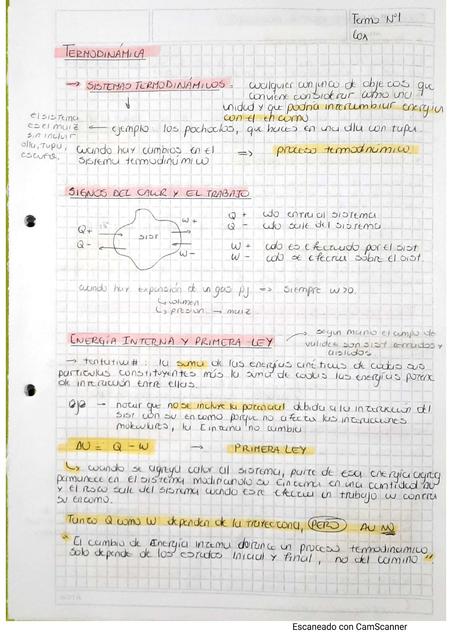 Termo N°1
TERMODINÁMICA
→ SISTEMAS TERMODINÁMICOS: cualquier conjunto de objetos que
conviene considerar como una
unidad y que podría intercambiar energía
con el entorno
el sistema
es el maiz
sin incluir
olla, tapa,
← ejemplo: los pochoclos, que haces en una olla con tapa.
cuando hay cambios en el
sistema termodinámico ⇒ proceso termodinámico
SIGNOS DEL CALOR Y EL TRABAJO
Q+
Q-
SIST
W+
W-
Q + cdo entra al sistema
Q - cdo sale del sistema
W + cdo es efectuado por el sist
W - cdo se efectua sobre el sist.
cuando hay expansión de un gas pj ⇒ siempre W>0.
↳ volumen
↳ presion → maiz
ENERGÍA INTERNA Y PRIMERA LEY
→ segun mario el campo de
validez son sist cerrados y
aislados
→ tentativa: la suma de las energías cinéticas de todas sus
partículas constituyentes más la suma de todas las energías potenc
de interacción entre ellas.
notar que no se incluye la potencial debida a la interaccion del
sist con su entorno porque no afecta las interacciones
moleculares, la E interna no cambia
ΔU = Q - W → PRIMERA LEY
↳ cuando se agrega calor al sistema, parte de esa energía
permanece en el sistema modificando su E interna en una cantidad ΔU
y el resto sale del sistema cuando este efectua un trabajo W contra
su entorno.
Tanto Q como W dependen de la trayectoria, PERO ΔU NO
"El cambio de Energía interna durante un proceso termodinámico
solo depende de los estados inicial y final, no del camino"
Escaneado con CamScanner